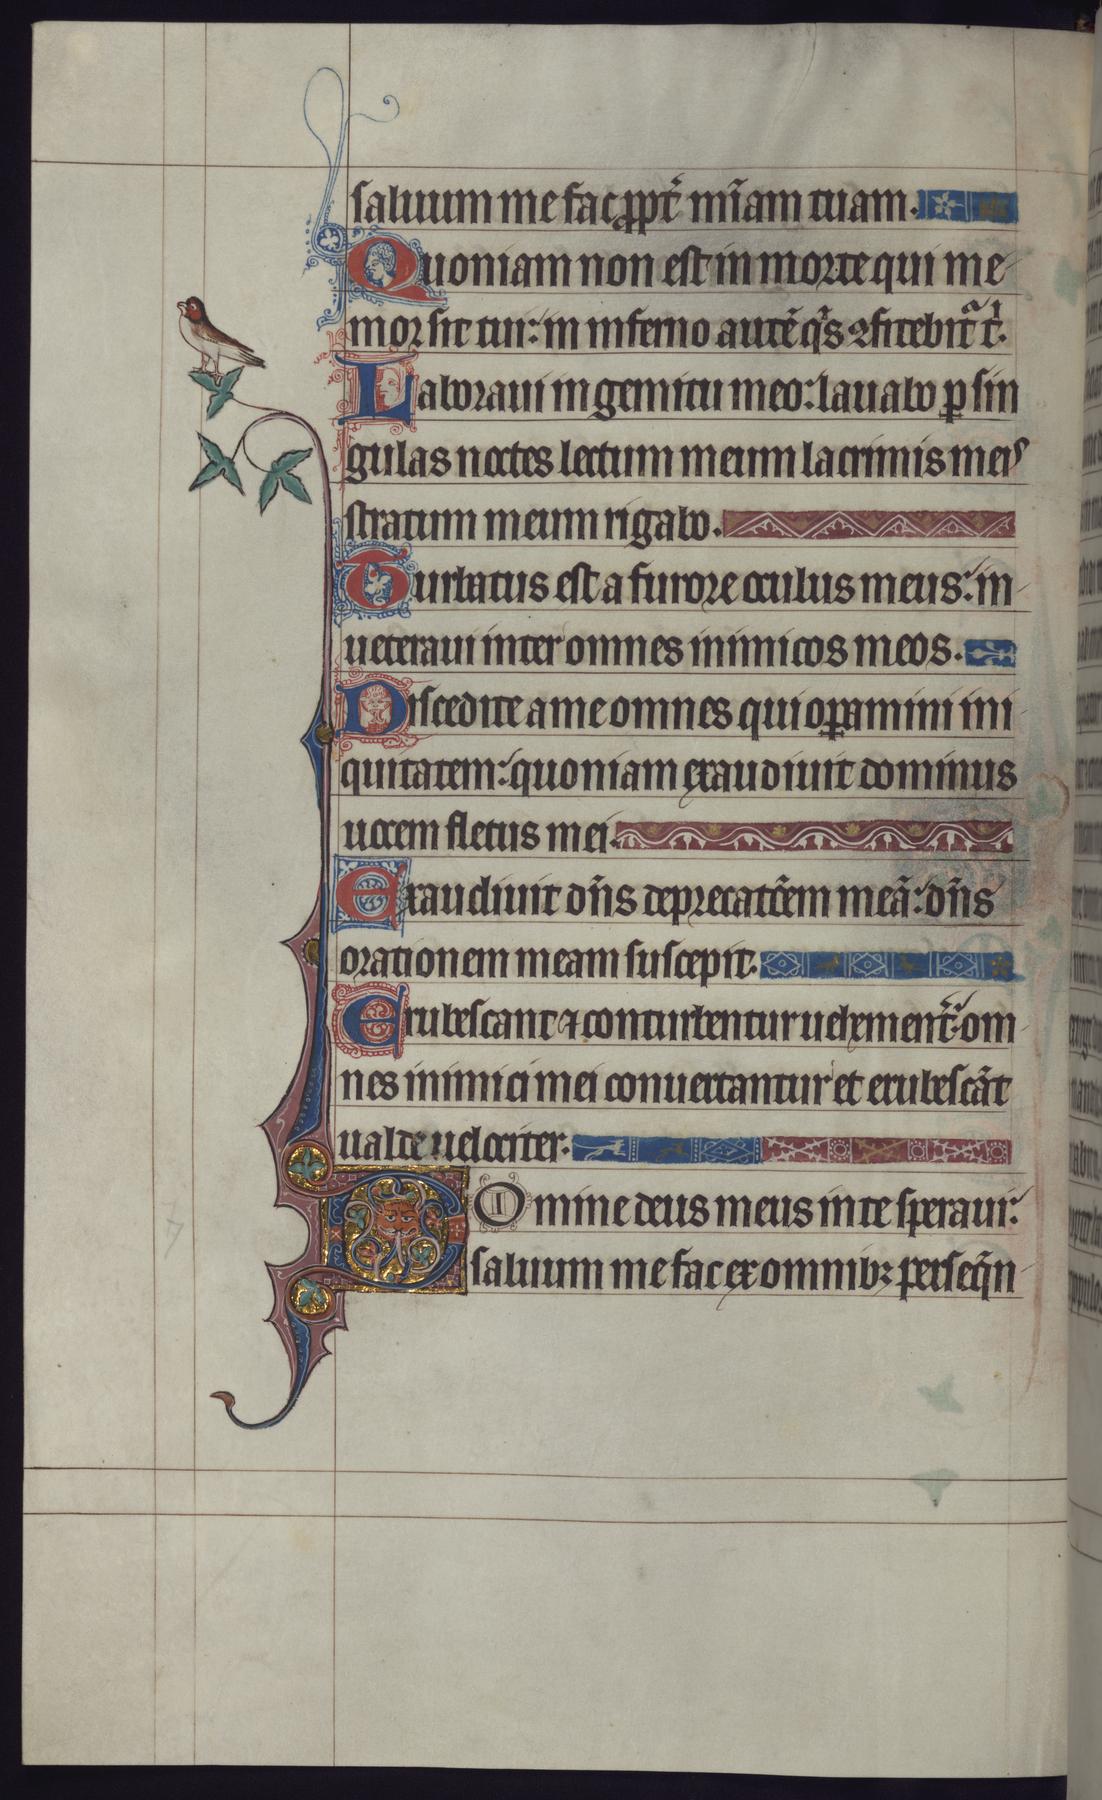 saluum me fac ꝓpt̄ mīam tuam.
Quoniam non est in morte qui me
mor sit tui: in inferno autē qͥs ꝯfitebitᷓ tⁱ.
Laboraui in gemitu meo: lauabo ꝑ sin
gulas noctes lectum meum lacrimis meis
stratum meum rigabo.
Turbatus est a furore oculus meus: in
ueteraui inter omnes inimicos meos.
Discedite a me omnes qui oꝑamini ini
quitatem: quoniam exaudiuit dominus
uocem fletus mei.
Exaudiuit dn̄s deprecatōem meā: dn̄s
orationem meam suscepit.
Erubescant ⁊ conturbentur uehement̄ om
nes inimici mei conuertantur et erubescāt
ualde uelociter.
DOmine deus meus in te speraui:
saluum me fac ex omnibꝫ perseq̄n